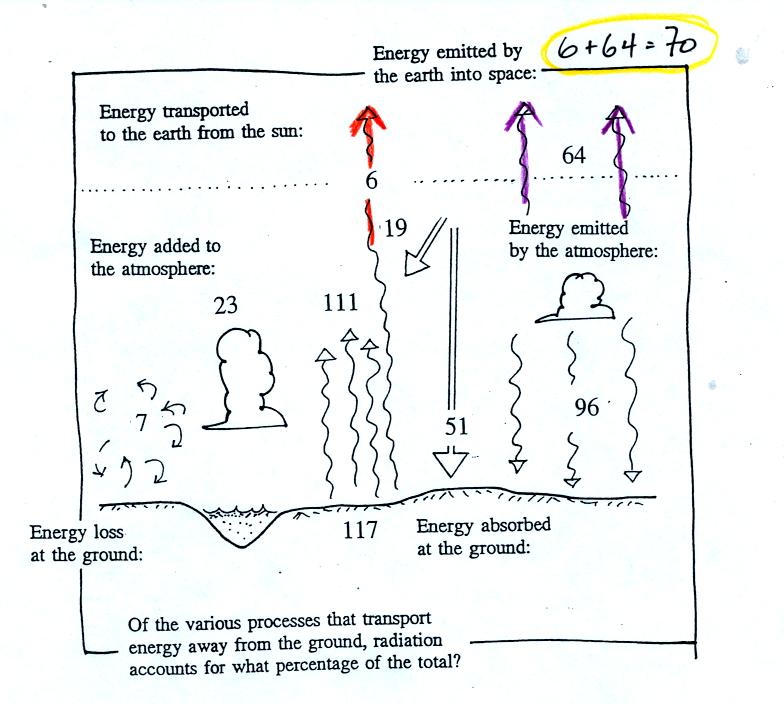 Energy emitted by
the earth into space:
6+64=70
Energy transported
to the earth from the sun:
64
6
19
Energy emitted
by the atmosphere:
Energy added to
the atmosphere:
23
111
7
96
51
117
Energy loss
at the ground:
Energy absorbed
at the ground:
Of the various processes that transport
energy away from the ground, radiation
accounts for what percentage of the total?